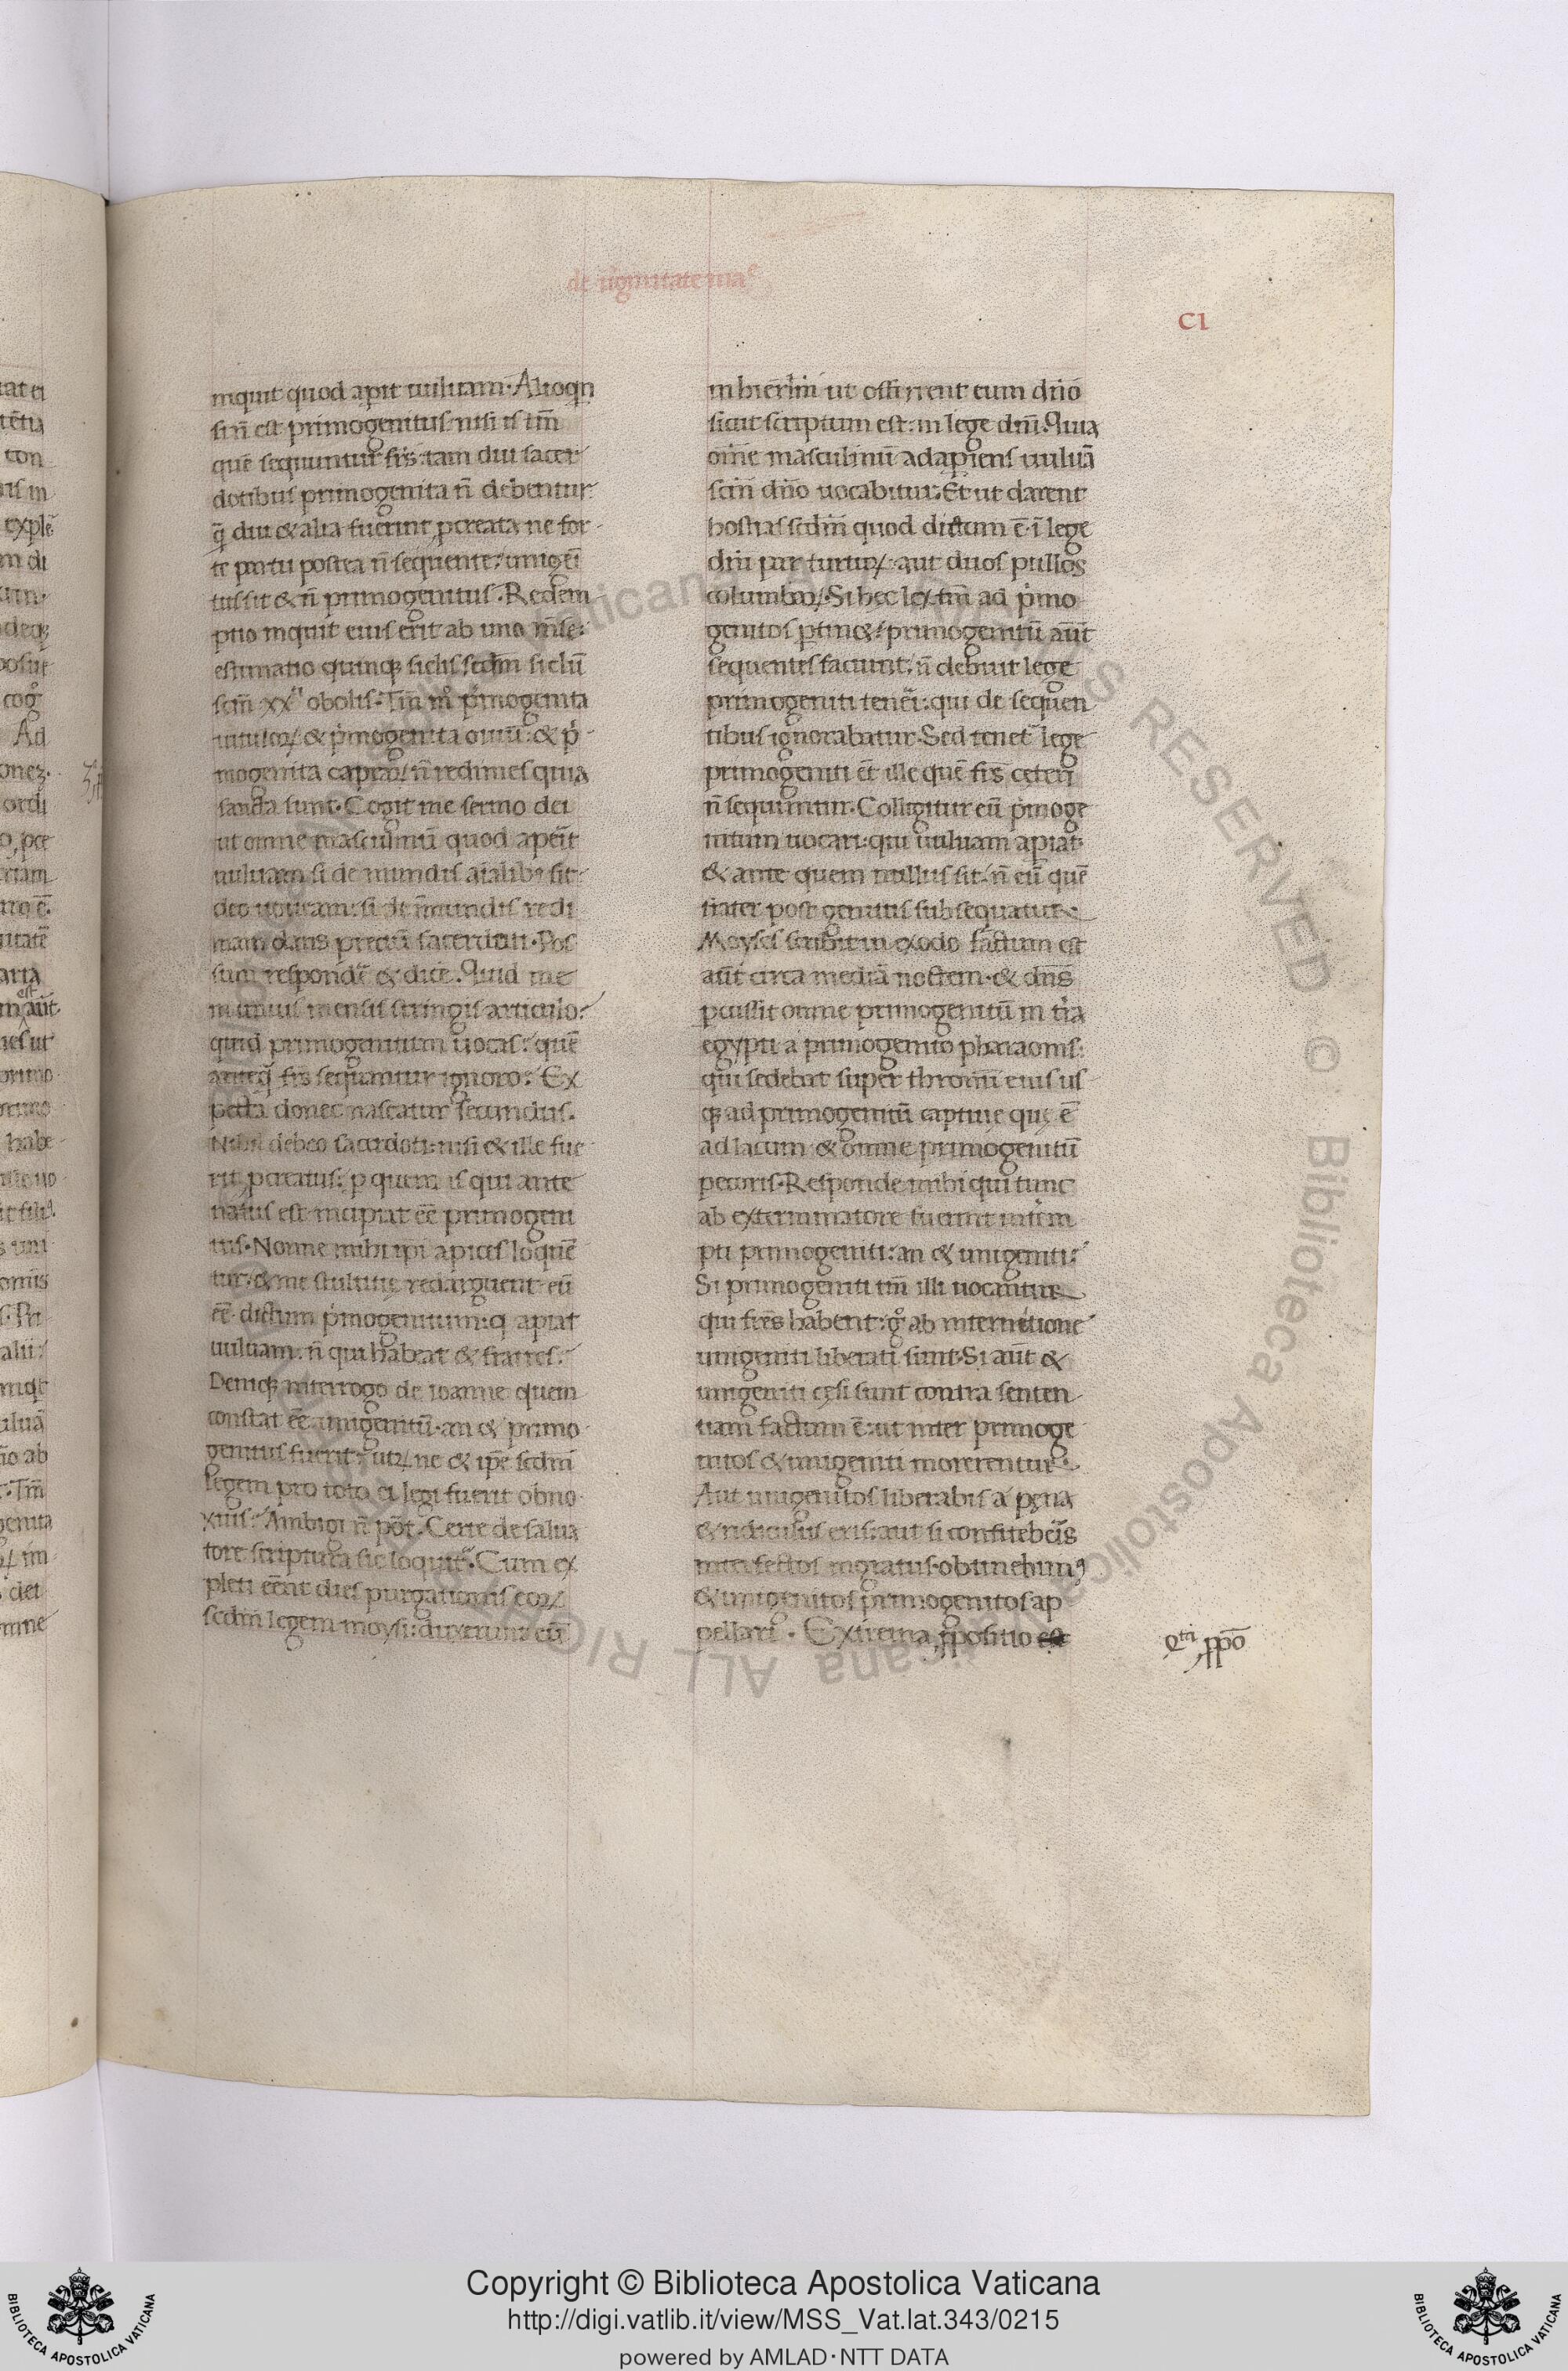 de ũginitate ma^e
CI
inquit quod apit uuluam. Alioqn
si ñ est primogenitus nisi is tm̃
quẽ sequuntur frs̃: tam diu sacer
dotibus primogenita ñ debentur
q̃ diu & alia fuerint pcreata ne for
te partu postea ñ sequente: unigẽi
tus sit & ñ primogenitus. Redem
ptio inquit eius erit ab uno mẽse:
estimatio quinq; siclis scdm̃ siclũ
scm̃ xx^ti obolis. Tm̃ mͦ pͥmogenita
uituloꝝ & pͥmogenita ouiũ: & pͥ
mogenita capraꝝ ñ redimes quia
sancta sunt. Cogit me sermo dei
ut omne masculinũ quod apeĩt
uuluam si de mundis aĩalib; sit
deo uoueam: si de ĩmundis redi
mam dans preciũ sacerdoti. Pos
sum respondẽ & dicẽ. Quid me
in unius mensis stringis articulo?
quid primogenitum uocas? quẽ
an frs̃ sequantur ignoro? Ex
pecta donec nascatur secundus.
Nihil debeo sacerdoti: nisi & ille fue
rit pcreatus: p quem is qui ante
natus est incipiat eẽ primogeni
tus. Nonne mihi ipi apices loquẽ
tur: & me stultitię redarguent eũ
eẽ dictum pͥmogenitum: q apiat
uuluam: ñ qui habeat & fratres?
Deniq; interrogo de ioanne quem
constat eẽ unigenitũ: an & primo
genitus fuerit? utꝝ ne & ipẽ scdm̃
legem pro toto ei legi fuerit obno
xius? Ambigi ñ põt. Certe de salua
tore scriptura sic loquit̃. Cum ex
pleti eẽnt dies purgationis eoꝝ
scdm̃ legem moysi: duxerunt eũ
in hierlm̃ ut offerrent eum dño
sicut scriptum est: in lege dñi. Quia
om̃e masculinũ adapiens uuluã
scm̃ dño uocabitur. Et ut darent
hostias scdm̃ quod dictum ẽ ĩ lege
dñi par turtuꝝ: aut duos pullos
columbaꝝ. Si hec lex tm̃ ad pͥmo
genitos ptin&: primogenitũ aũt
sequentis faciunt: ñ debuit lege
primogeniti tenẽi: qui de sequen
tibus ignorabatur. Sed tenet̃ lege
primogeniti ẽt ille quẽ frs̃ ceteri
ñ sequuntur. Colligitur eũ pͥmoge
nitum uocari: qui uuluam apiat
& ante quem nullus sit: ñ eũ quẽ
frater post genitus subsequatur.
Moyses scribit in exodo factum est
aũt circa mediã noctem: & dñs
pcussit omne primogenitũ in tr̃a
egypti a primogenito pharaonis:
qui sedebat super thronũ eius us
q; ad primogenitũ captiue que ẽ
ad lacum & omne primogenitũ
pecoris. Responde mihi qui tunc
ab exterminatore fuerint intem
pti primogeniti: an & unigeniti?
Si primogeniti tm̃ illi uocantur
qui frẽs habent: gͦ ab internitione
unigeniti liberati sunt. Si aũt &
unigeniti cęsi sunt contra senten
tiam factum ẽ: ut inter primoge
nitos & unigeniti morerentur.
Aut unigenitos liberabis a pęna
& ridiculus eris: aut si confitebẽis
interfectos ingratis obtinebim9
& unigenitos primogenitos ap
pellari. Extrema ꝓpositio est
Q^rti ꝓpõ
Copyright © Biblioteca Apostolica Vaticana
http://digi.vatlib.it/view/MSS_Vat.lat.343/0215
powered by AMLAD·NTT DATA
BIBLIOTECA APOSTOLICA VATICANA
BIBLIOTECA APOSTOLICA VATICANA